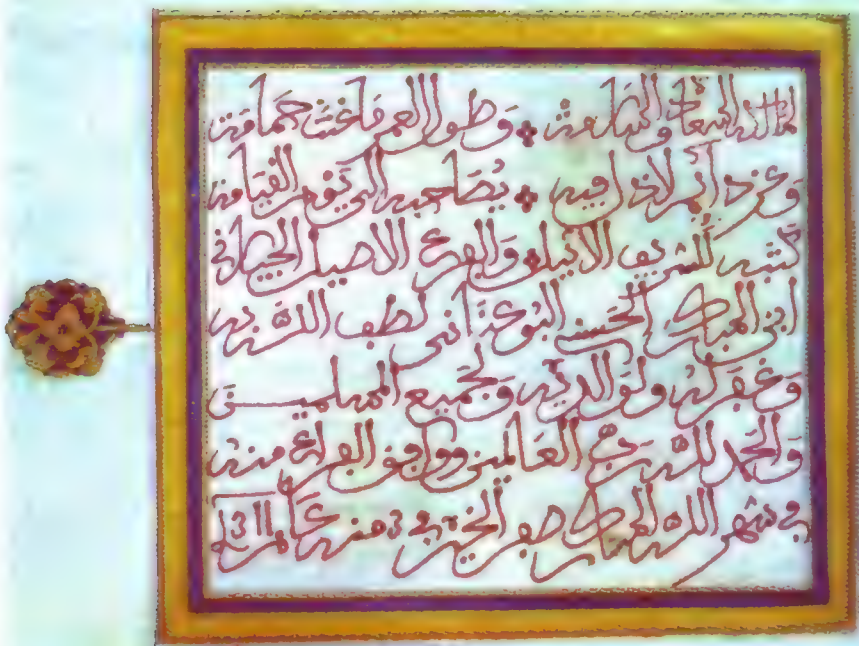 لمالكه السعادة والسلامة ۞ وطول العمر ما غنت حمامة
وعز دائم لا ذل فيه ۞ يصاحبه الى يوم القيامة
كتبه الشريف الاثيل والفرع الاصيل
ابن المبارك الحسن البوعناني لطف الله به
وغفر له ولوالديه ولجميع المسلمين
والحمد لله رب العالمين ووافق الفراغ منه
في شهر الله المبارك صفر الخير في 3 منه عام